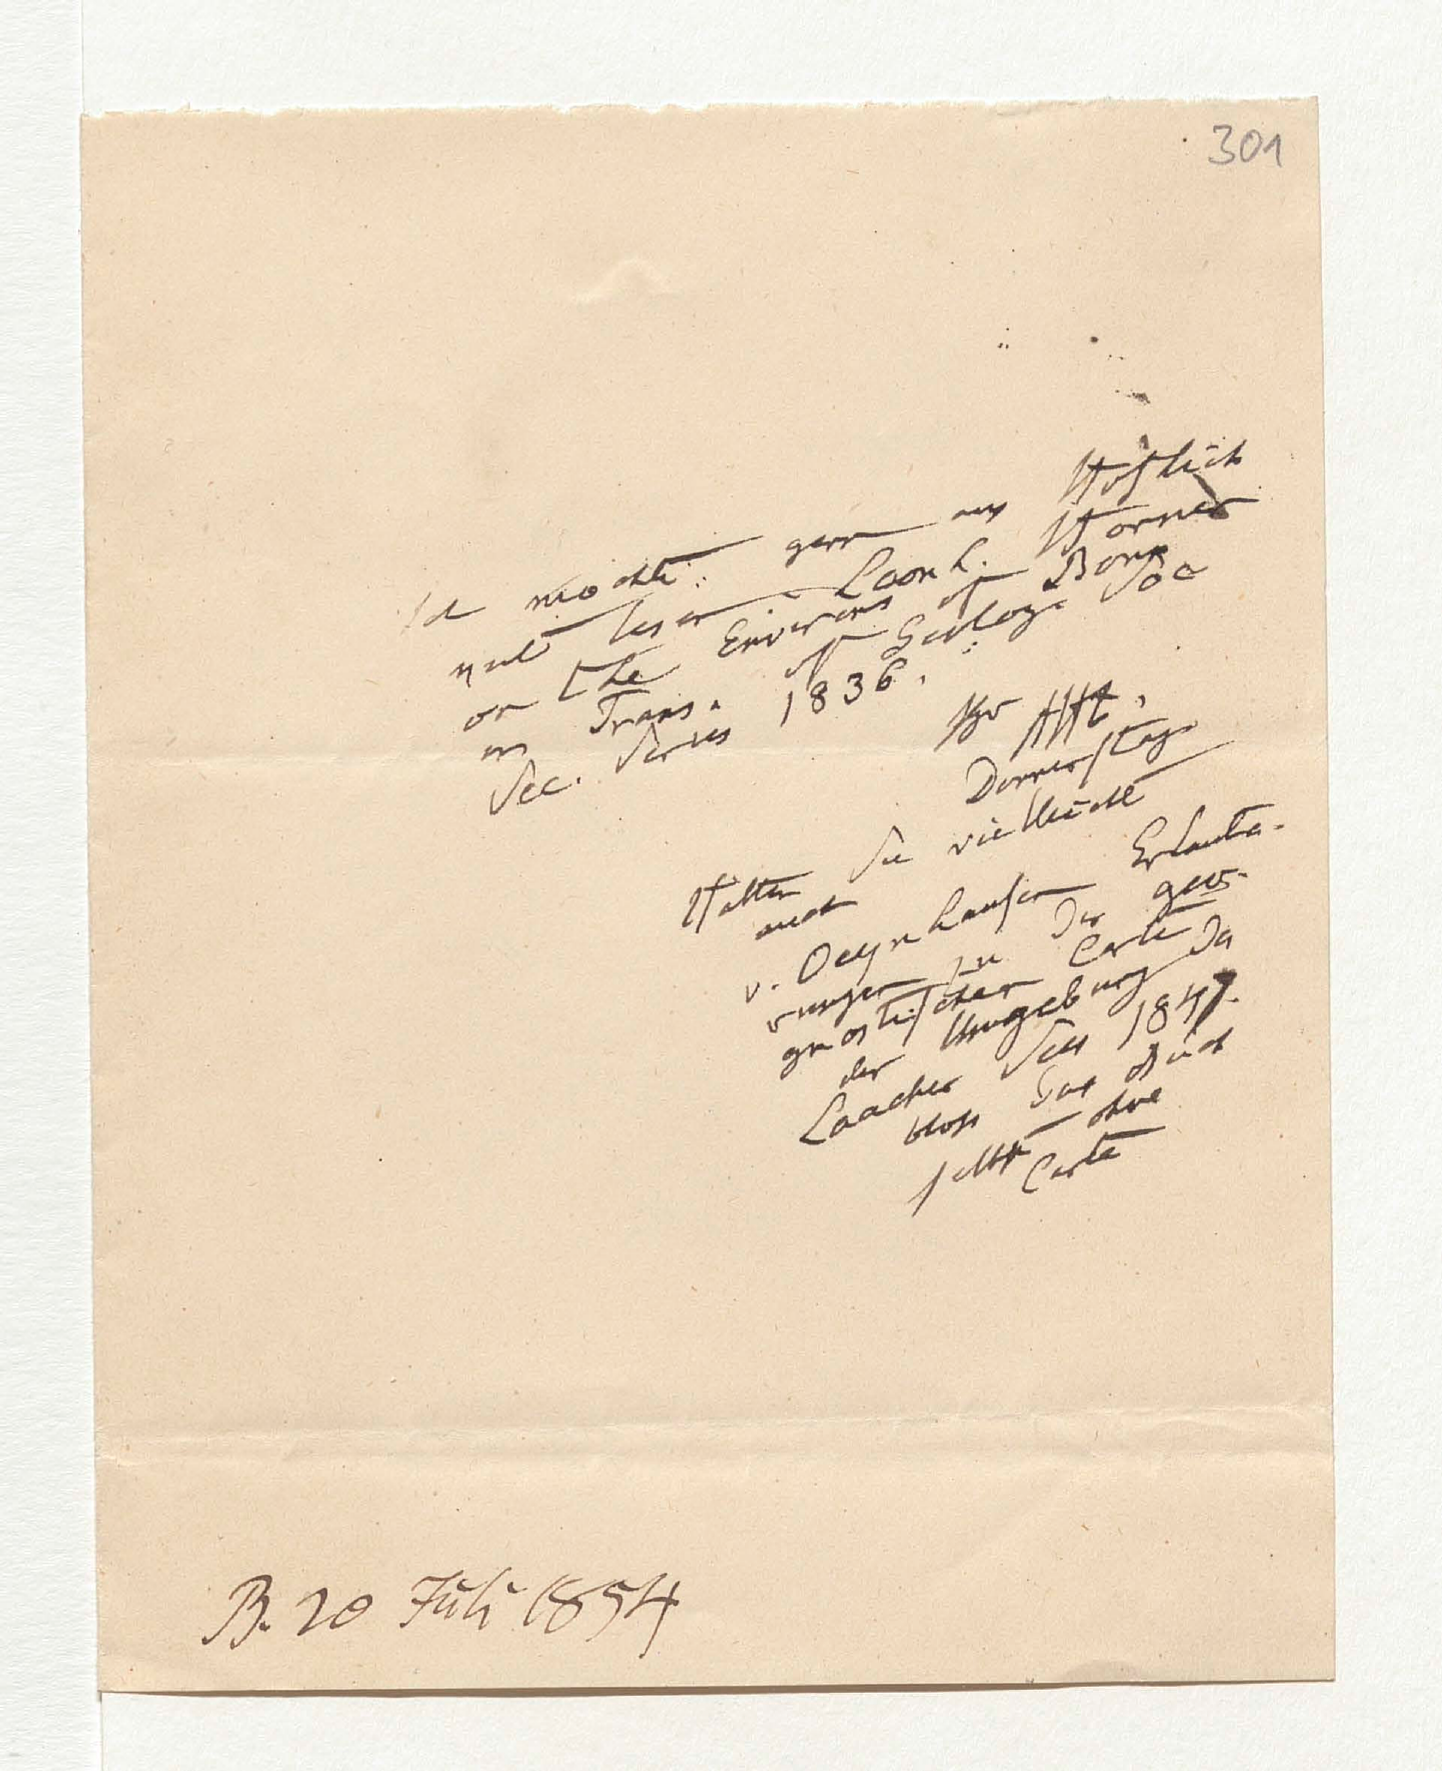 301
Ich möchte gern aus Höflich
nah lesen Leonh. Horner
on the Environs of Bonn
in Trans. of Geolog. Soc
Sec. Series 1836.
Ihr AHt,
Donnerstag
Hätten Sie vielleicht
auch
v. Oeynhausen Erläute-
rungen zu der geo-
gnostischen Carte der
der Umgebung des
Laacher Sees 1847.
bloss das Buch
selbst ohne
Carte
B. 20 Juli 1854